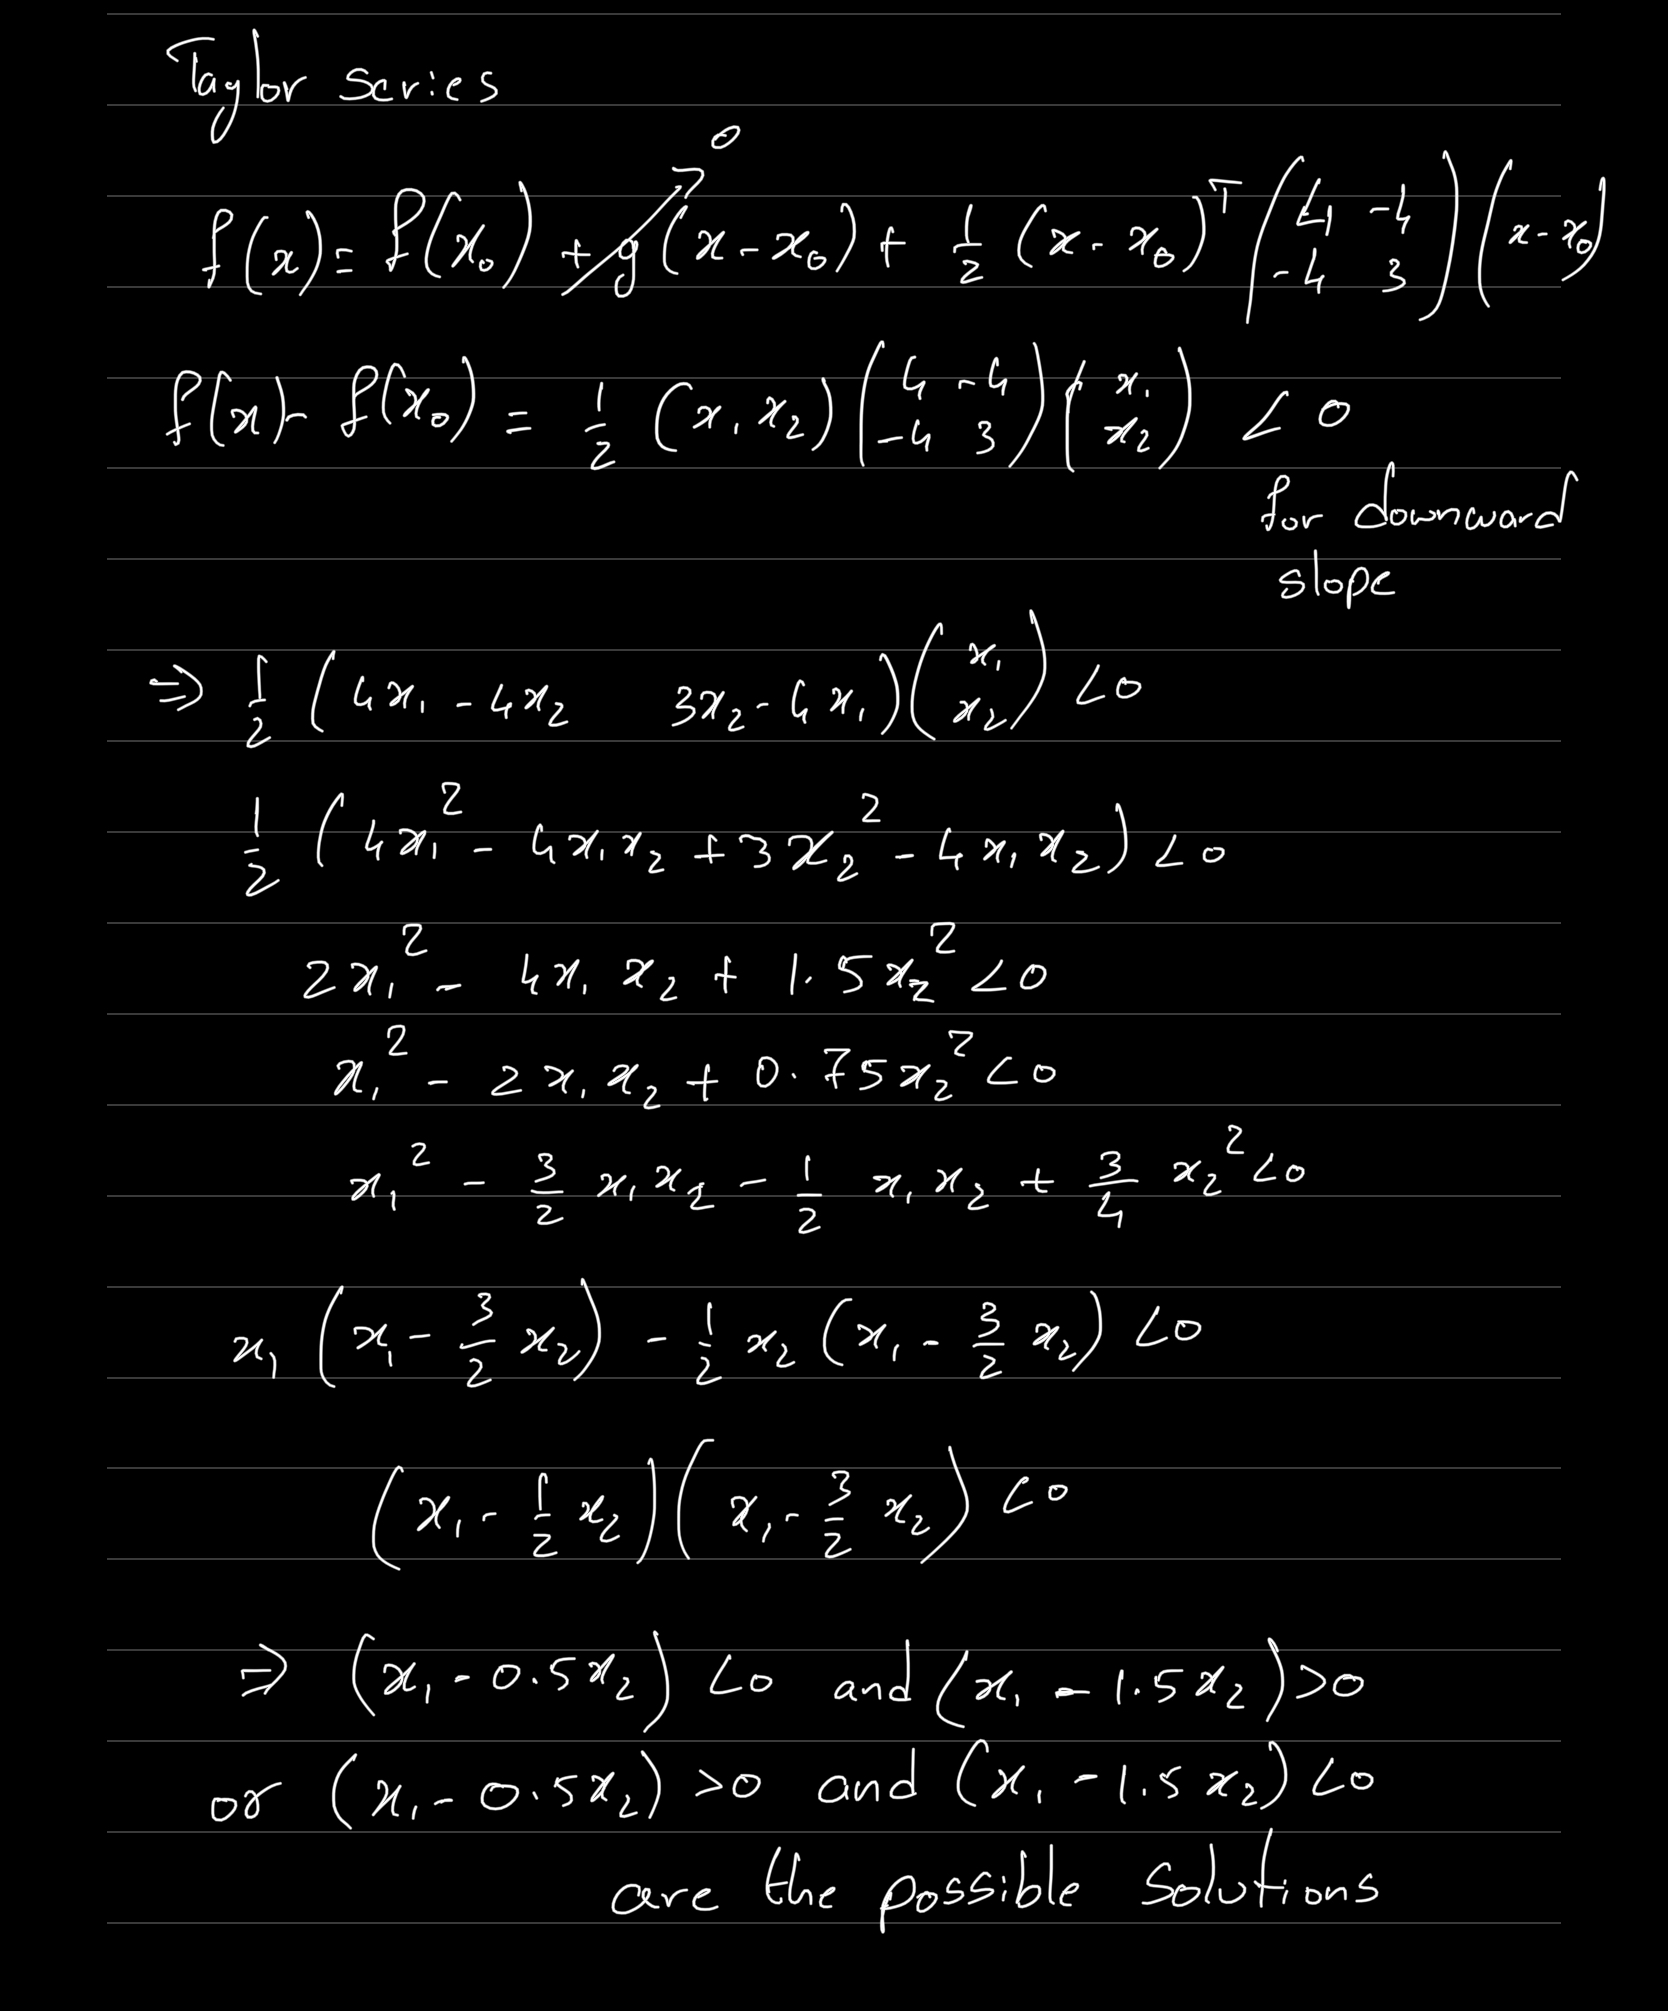 Taylor Series
f(x) = f(x₀) + g(x - x₀) + 1/2 (x - x₀)ᵀ (4 -4 -4 3) (x - x₀)
0
f(x) - f(x₀) = 1/2 (x₁ x₂) (4 -4 -4 3) (x₁ x₂) < 0
for downward
slope
⇒ 1/2 (4x₁ - 4x₂ 3x₂ - 4x₁) (x₁ x₂) < 0
1/2 (4x₁² - 4x₁x₂ + 3x₂² - 4x₁x₂) < 0
2x₁² - 4x₁x₂ + 1.5x₂² < 0
x₁² - 2x₁x₂ + 0.75x₂² < 0
x₁² - 3/2 x₁x₂ - 1/2 x₁x₂ + 3/4 x₂² < 0
x₁ (x₁ - 3/2 x₂) - 1/2 x₂ (x₁ - 3/2 x₂) < 0
(x₁ - 1/2 x₂) (x₁ - 3/2 x₂) < 0
⇒ (x₁ - 0.5x₂) < 0 and (x₁ - 1.5x₂) > 0
or (x₁ - 0.5x₂) > 0 and (x₁ - 1.5x₂) < 0
are the possible solutions